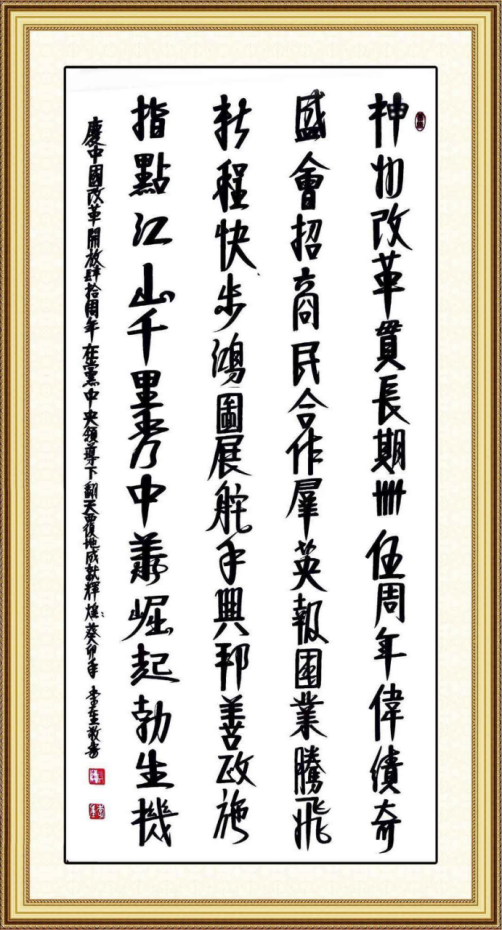 神州改革貫長期卌伍周年偉績奇
盛會招商民合作羣英報國業騰飛
新程快步鴻圖展舵手興邦善政施
指點江山千里秀中華崛起勃生機
慶中國改革開放肆拾周年在黨中央領導下翻天覆地成就輝煌癸卯年李在敬書